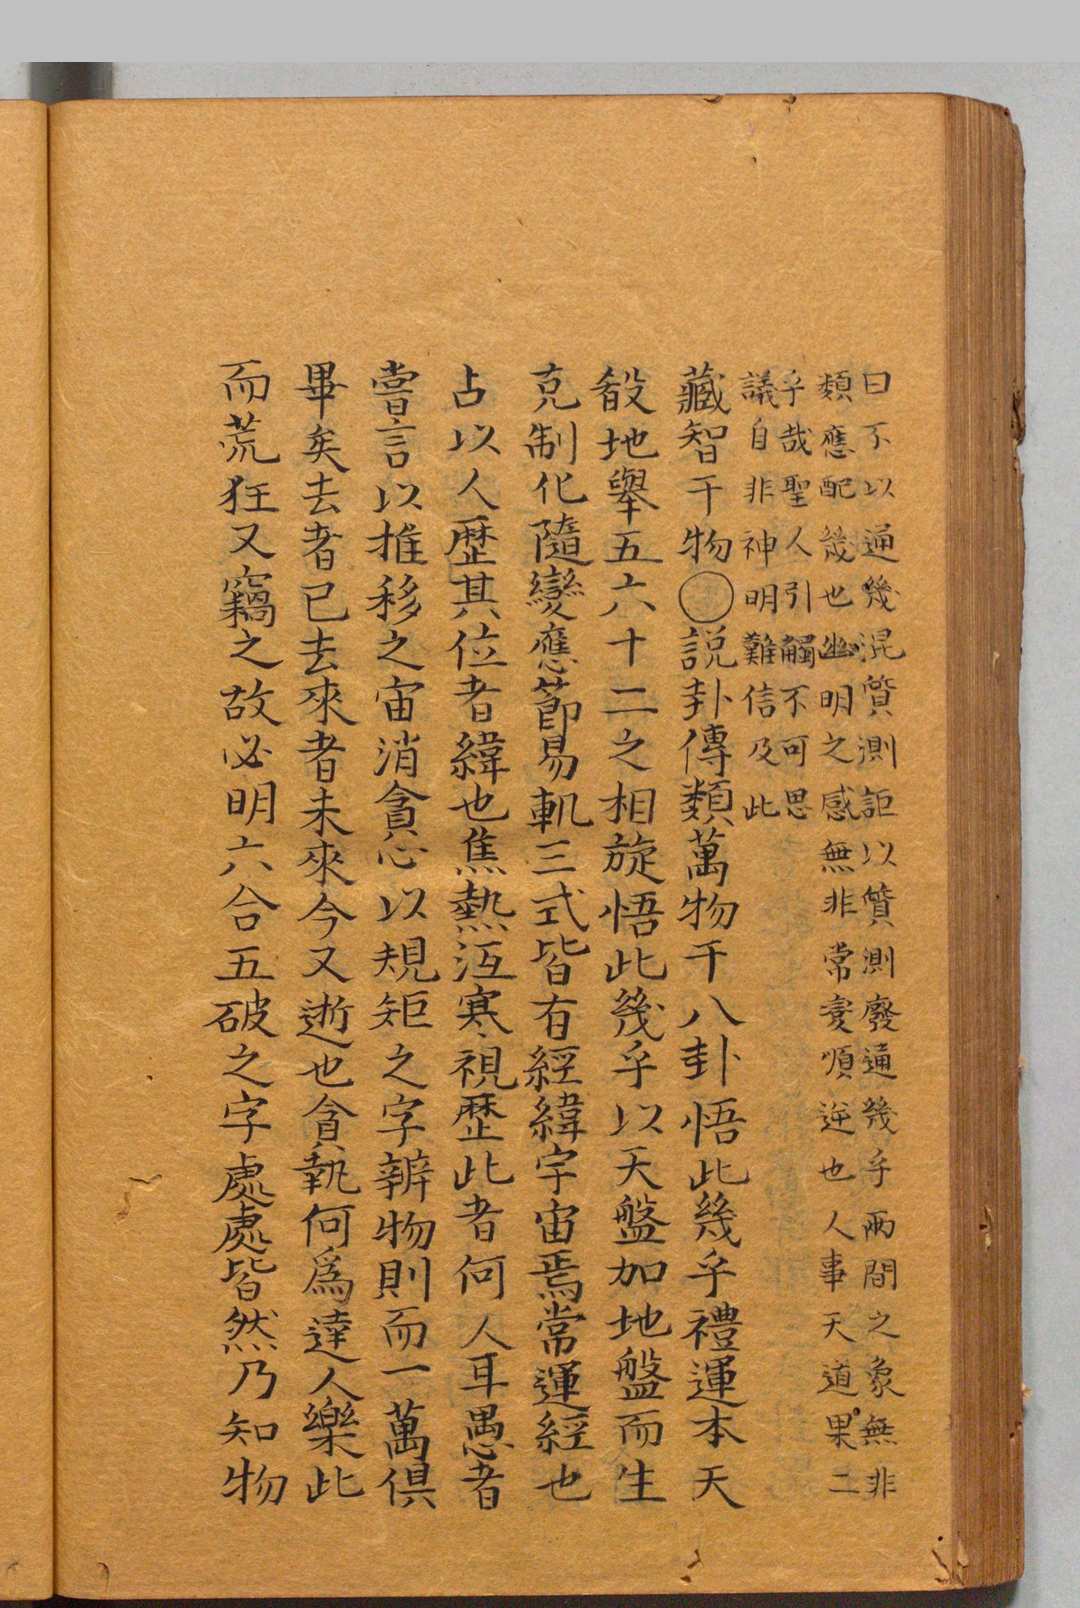 曰不以通幾混質測詎以質測廢通幾乎兩間之象無非
類應配幾也幽明之感無非常変順逆也人事天道果二
乎哉聖人引觸不可思
議自非神明難信及此
藏智于物○説卦傳類萬物于八卦悟此幾乎禮運本天
殽地舉五六十二之相旋悟此幾乎以天盤加地盤而生
克制化隨變應節易軌三式皆有經緯宇宙焉常運經也
占以人歷其位者緯也焦熱沍寒視歷此者何人耳愚者
嘗言以推移之宙消貪心以規矩之字辨物則而一萬俱
畢矣去者已去來者未來今又逝也貪執何爲達人樂此
而荒狂又竊之故必明六合五破之字處處皆然乃知物